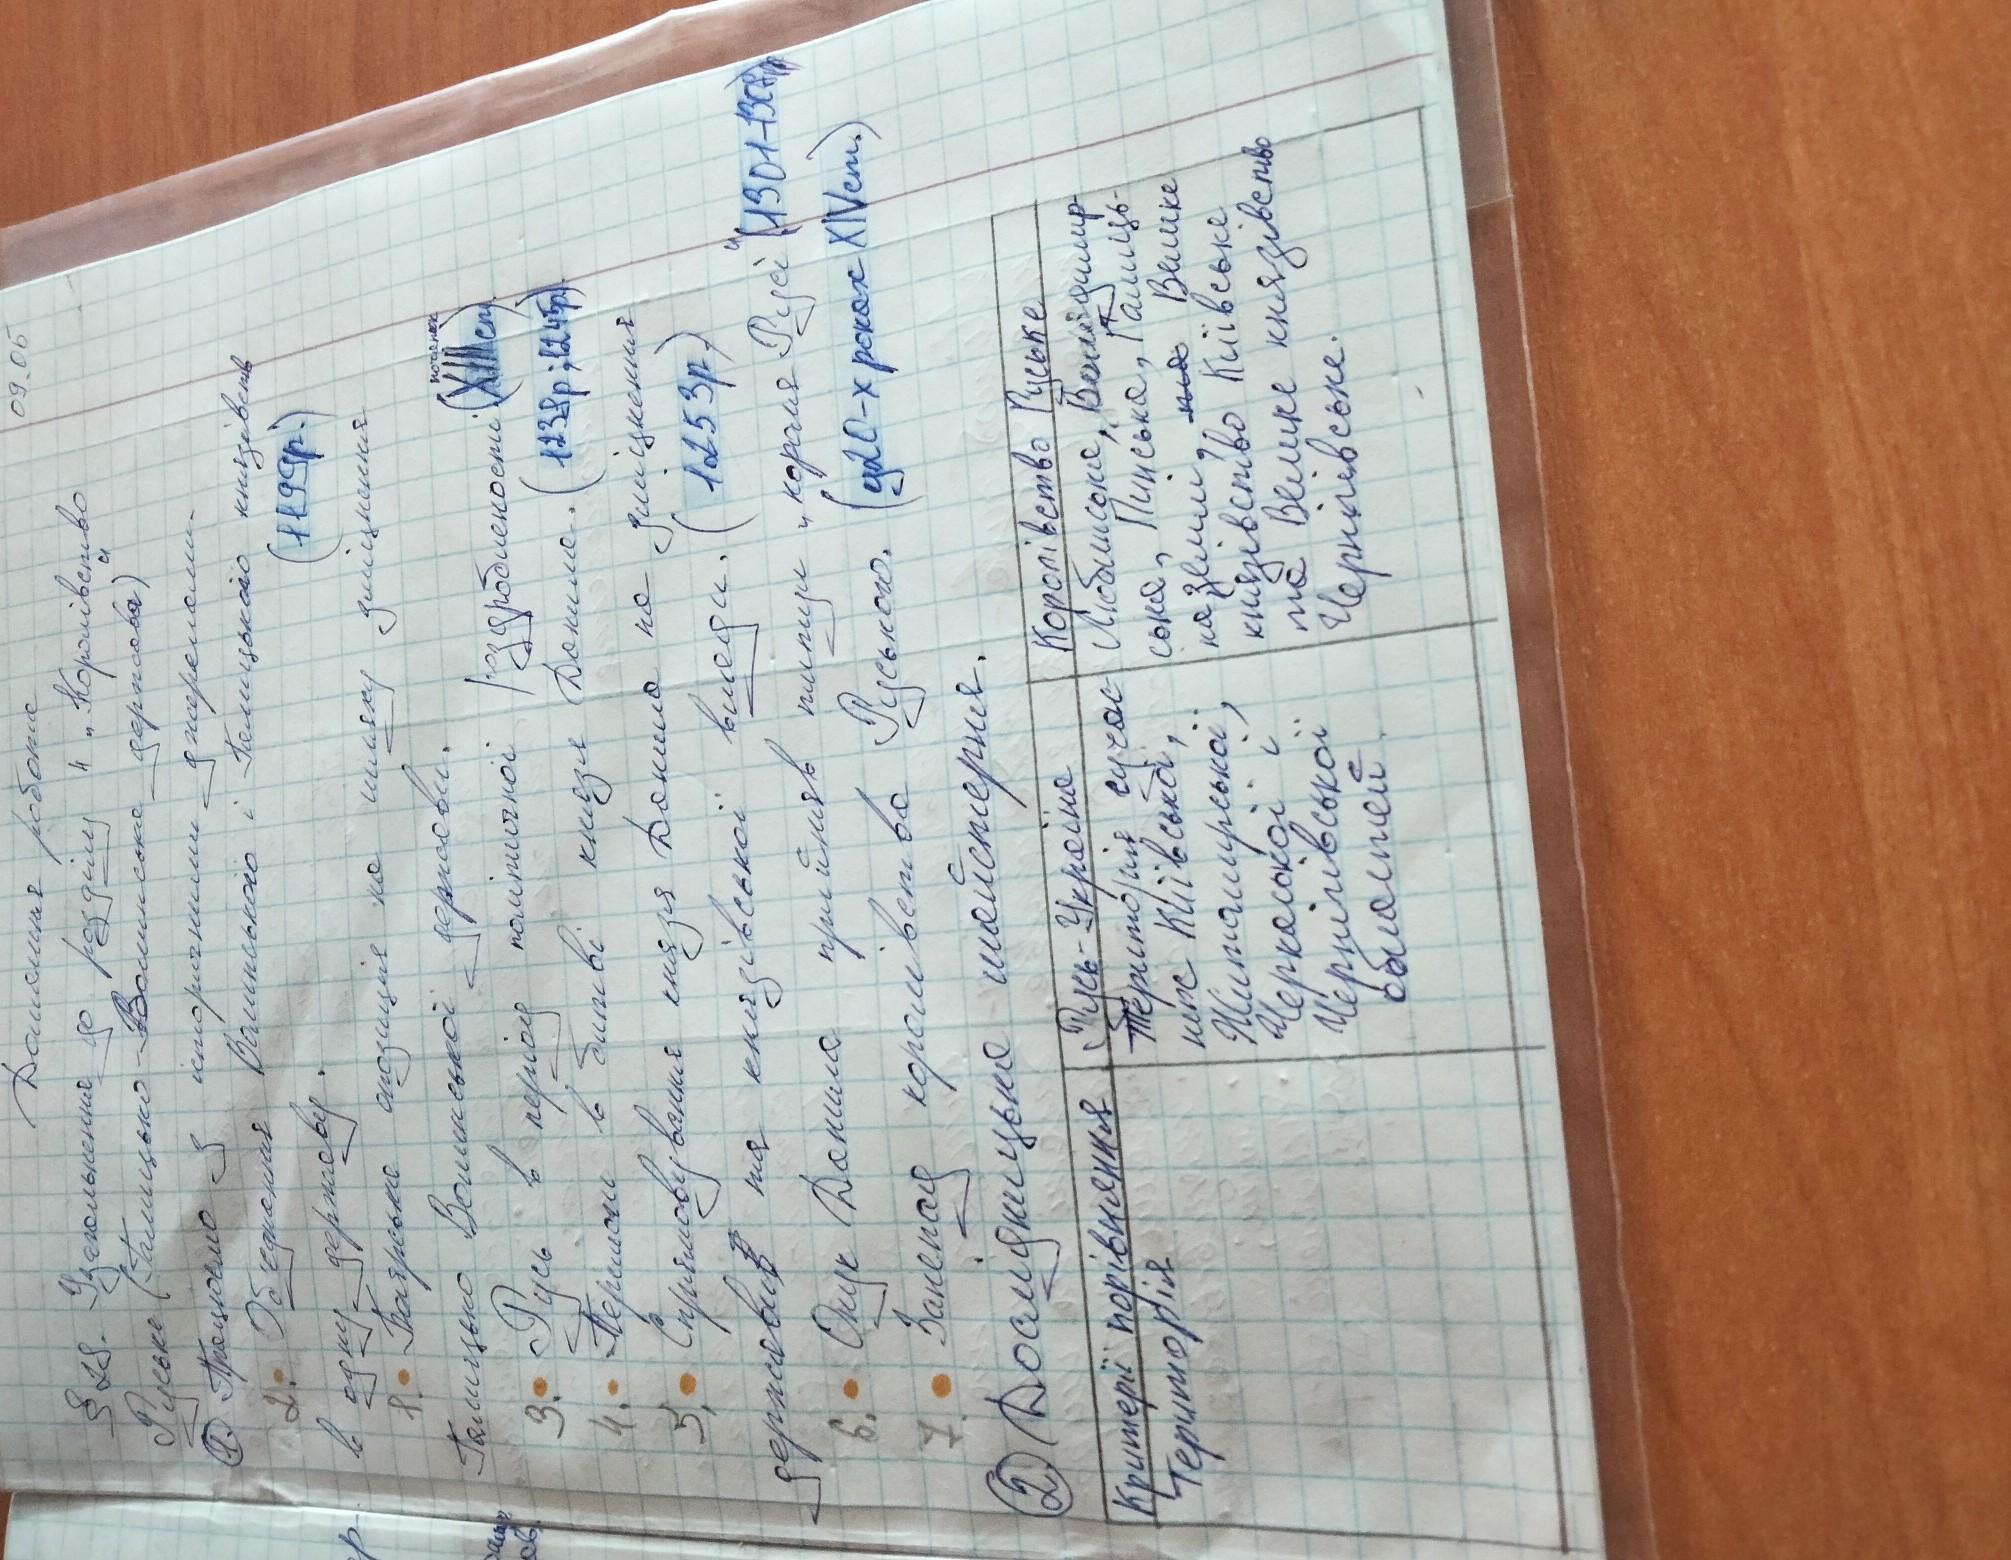 09.05
Домашня робота
§ 28. Узагальнення до розділу 4 „Королівство
Руське (Галицько-Волинська держава)"
1. Працюємо з історичними джерелами.
2. Об'єднання Волинського і Галицького князівств
в одну державу. (1199р.)
1. Боярська опозиція на шляху зміцнення
Галицько Волинської держави.
початок
3. Русь в період політичної роздробленості. (XIII ст)
4. Перемоги в битві князя Данила. (1238р; 1245р.)
5. Спрямовування князя Данила на зміцнення
держави та князівської влади. (1253р.)
6. Онук Данила прийняв титул „короля Русі" (1301-1308рр)
7. Занепад королівства Руського. (у 20-х роках XIV ст.)
2. Дослідницька майстерня.
Критерії порівняння Русь-Україна Королівство Руське
Територія
Територія сучас-
ниж Київської,
Житомирської,
Черкаської і
Чернігівської
областей
Любинська, Володимир
ська, Пинська, Галиць-
ка землі, Велике
князівство Київське
та Велике князівство
Чернігівське.